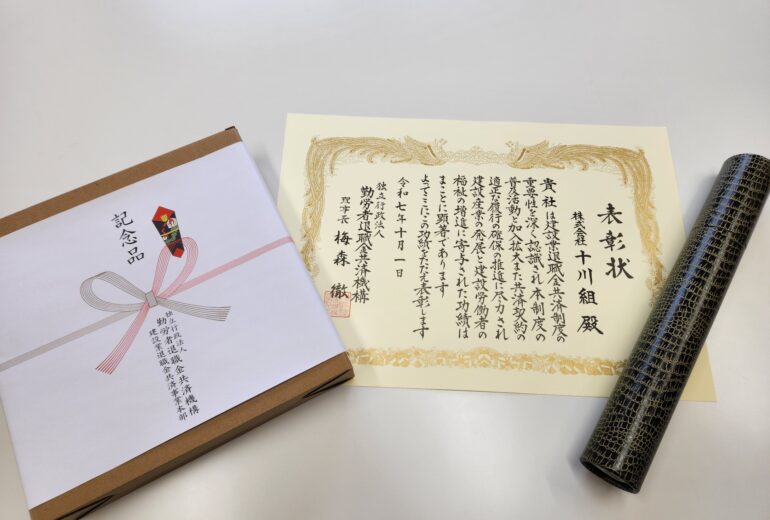 記念品
独立行政法人
勤労者退職金共済機構
建設業退職金共済事業本部
表彰状
株式会社 十川組 殿
貴社は建設業退職金共済制度の
重要性を深く認識され本制度の
普及活動と加入拡大また共済契約の
適正な履行の確保の推進に尽力され
建設産業の発展と建設労働者の
福祉の増進に寄与された功績は
まことに顕著であります
よってここにこの功績をたたえ表彰します
令和七年十月一日
独立行政法人
勤労者退職金共済機構
理事長 梅森 徹